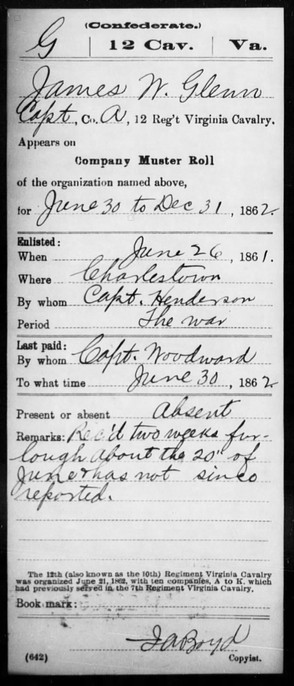 (Confederate.)
G | 12 Cav. | Va.
James W. Glenn
Capt, Co. A, 12 Reg't Virginia Cavalry.
Appears on
Company Muster Roll
of the organization named above,
for June 30 to Dec 31, 1862.
Enlisted:
When June 26, 1861.
Where Charlestown
By whom Capt. Henderson
Period The war
Last paid:
By whom Capt. Woodward
To what time June 30, 1862
Present or absent Absent
Remarks: Rec'd two weeks fur-
lough about the 20" of
June & has not since
reported.
The 12th (also known as the 10th) Regiment Virginia Cavalry
was organized June 21, 1862, with ten companies, A to K, which
had previously served in the 7th Regiment Virginia Cavalry.
Book mark:
J A Boyd
(642) Copyist.